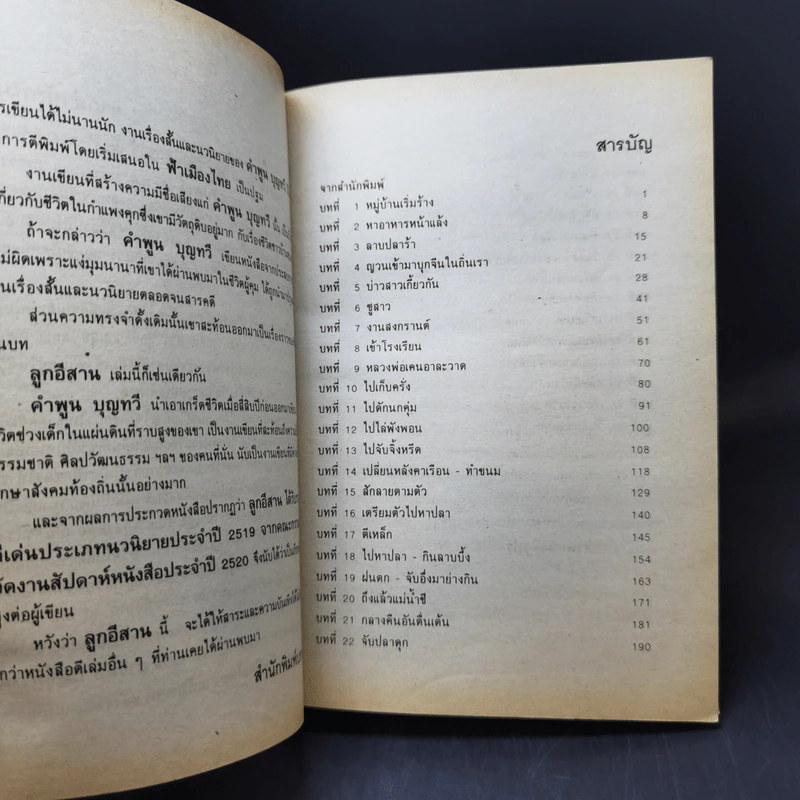 รเขียนได้ไม่นานนัก งานเรื่องสั้นและนวนิยายของ คำพูน บุญทวี
การตีพิมพ์โดยเริ่มเสนอใน ฟ้าเมืองไทย เป็นปฐม
งานเขียนที่สร้างความมีชื่อเสียงแก่ คำพูน บุญทวี นั้น
กี่ยวกับชีวิตในกำแพงคุกซึ่งเขามีวัตถุดิบอยู่มาก กับเรื่องชีวิต
ถ้าจะกล่าวว่า คำพูน บุญทวี เขียนหนังสือจาก
ม่ผิดเพราะแง่มุมนานาที่เขาได้ผ่านพบมาในชีวิตผู้คุม
นเรื่องสั้นและนวนิยายตลอดจนสารคดี
ส่วนความทรงจำดั้งเดิมนั้นเขาสะท้อนออกมาเป็นเรื่อง
นบท
ลูกอีสาน เล่มนี้ก็เช่นเดียวกัน
คำพูน บุญทวี นำเอาเกร็ดชีวิตเมื่อสี่สิบปีก่อนออกมา
ชีวิตช่วงเด็กในแผ่นดินที่ราบสูงของเขา เป็นงานเขียนที่สะท้อนถึง
รรมชาติ ศิลปวัฒนธรรม ฯลฯ ของคนที่นั่น นับเป็นงานเขียน
กษาสังคมท้องถิ่นนั้นอย่างมาก
และจากผลการประกวดหนังสือปรากฏว่า ลูกอีสาน
ดีเด่นประเภทนวนิยายประจำปี 2519 จากคณะ
จัดงานสัปดาห์หนังสือประจำปี 2520 จึงนับได้ว่า
สูงต่อผู้เขียน
หวังว่า ลูกอีสาน นี้ จะได้ให้สาระและความบันเทิง
กว่าหนังสือดีเล่มอื่น ๆ ที่ท่านเคยได้ผ่านพบมา
สำนักพิมพ์
สารบัญ
จากสำนักพิมพ์
บทที่ 1 หมู่บ้านเริ่มร้าง 1
บทที่ 2 หาอาหารหน้าแล้ง 8
บทที่ 3 ลาบปลาร้า 15
บทที่ 4 ญวนเข้ามาบุกจีนในถิ่นเรา 21
บทที่ 5 บ่าวสาวเกี้ยวกัน 28
บทที่ 6 ชูสาว 41
บทที่ 7 งานสงกรานต์ 51
บทที่ 8 เข้าโรงเรียน 61
บทที่ 9 หลวงพ่อเคนอาละวาด 70
บทที่ 10 ไปเก็บครั่ง 80
บทที่ 11 ไปดักนกคุ่ม 91
บทที่ 12 ไปไล่พังพอน 100
บทที่ 13 ไปจับจิ้งหรีด 108
บทที่ 14 เปลี่ยนหลังคาเรือน - ทำขนม 118
บทที่ 15 สักลายตามตัว 129
บทที่ 16 เตรียมตัวไปหาปลา 140
บทที่ 17 ตีเหล็ก 145
บทที่ 18 ไปหาปลา - กินลาบบึ้ง 154
บทที่ 19 ฝนตก - จับอึ่งมาย่างกิน 163
บทที่ 20 ถึงแล้วแม่น้ำชี 171
บทที่ 21 กลางคืนอันตื่นเต้น 181
บทที่ 22 จับปลาดุก 190